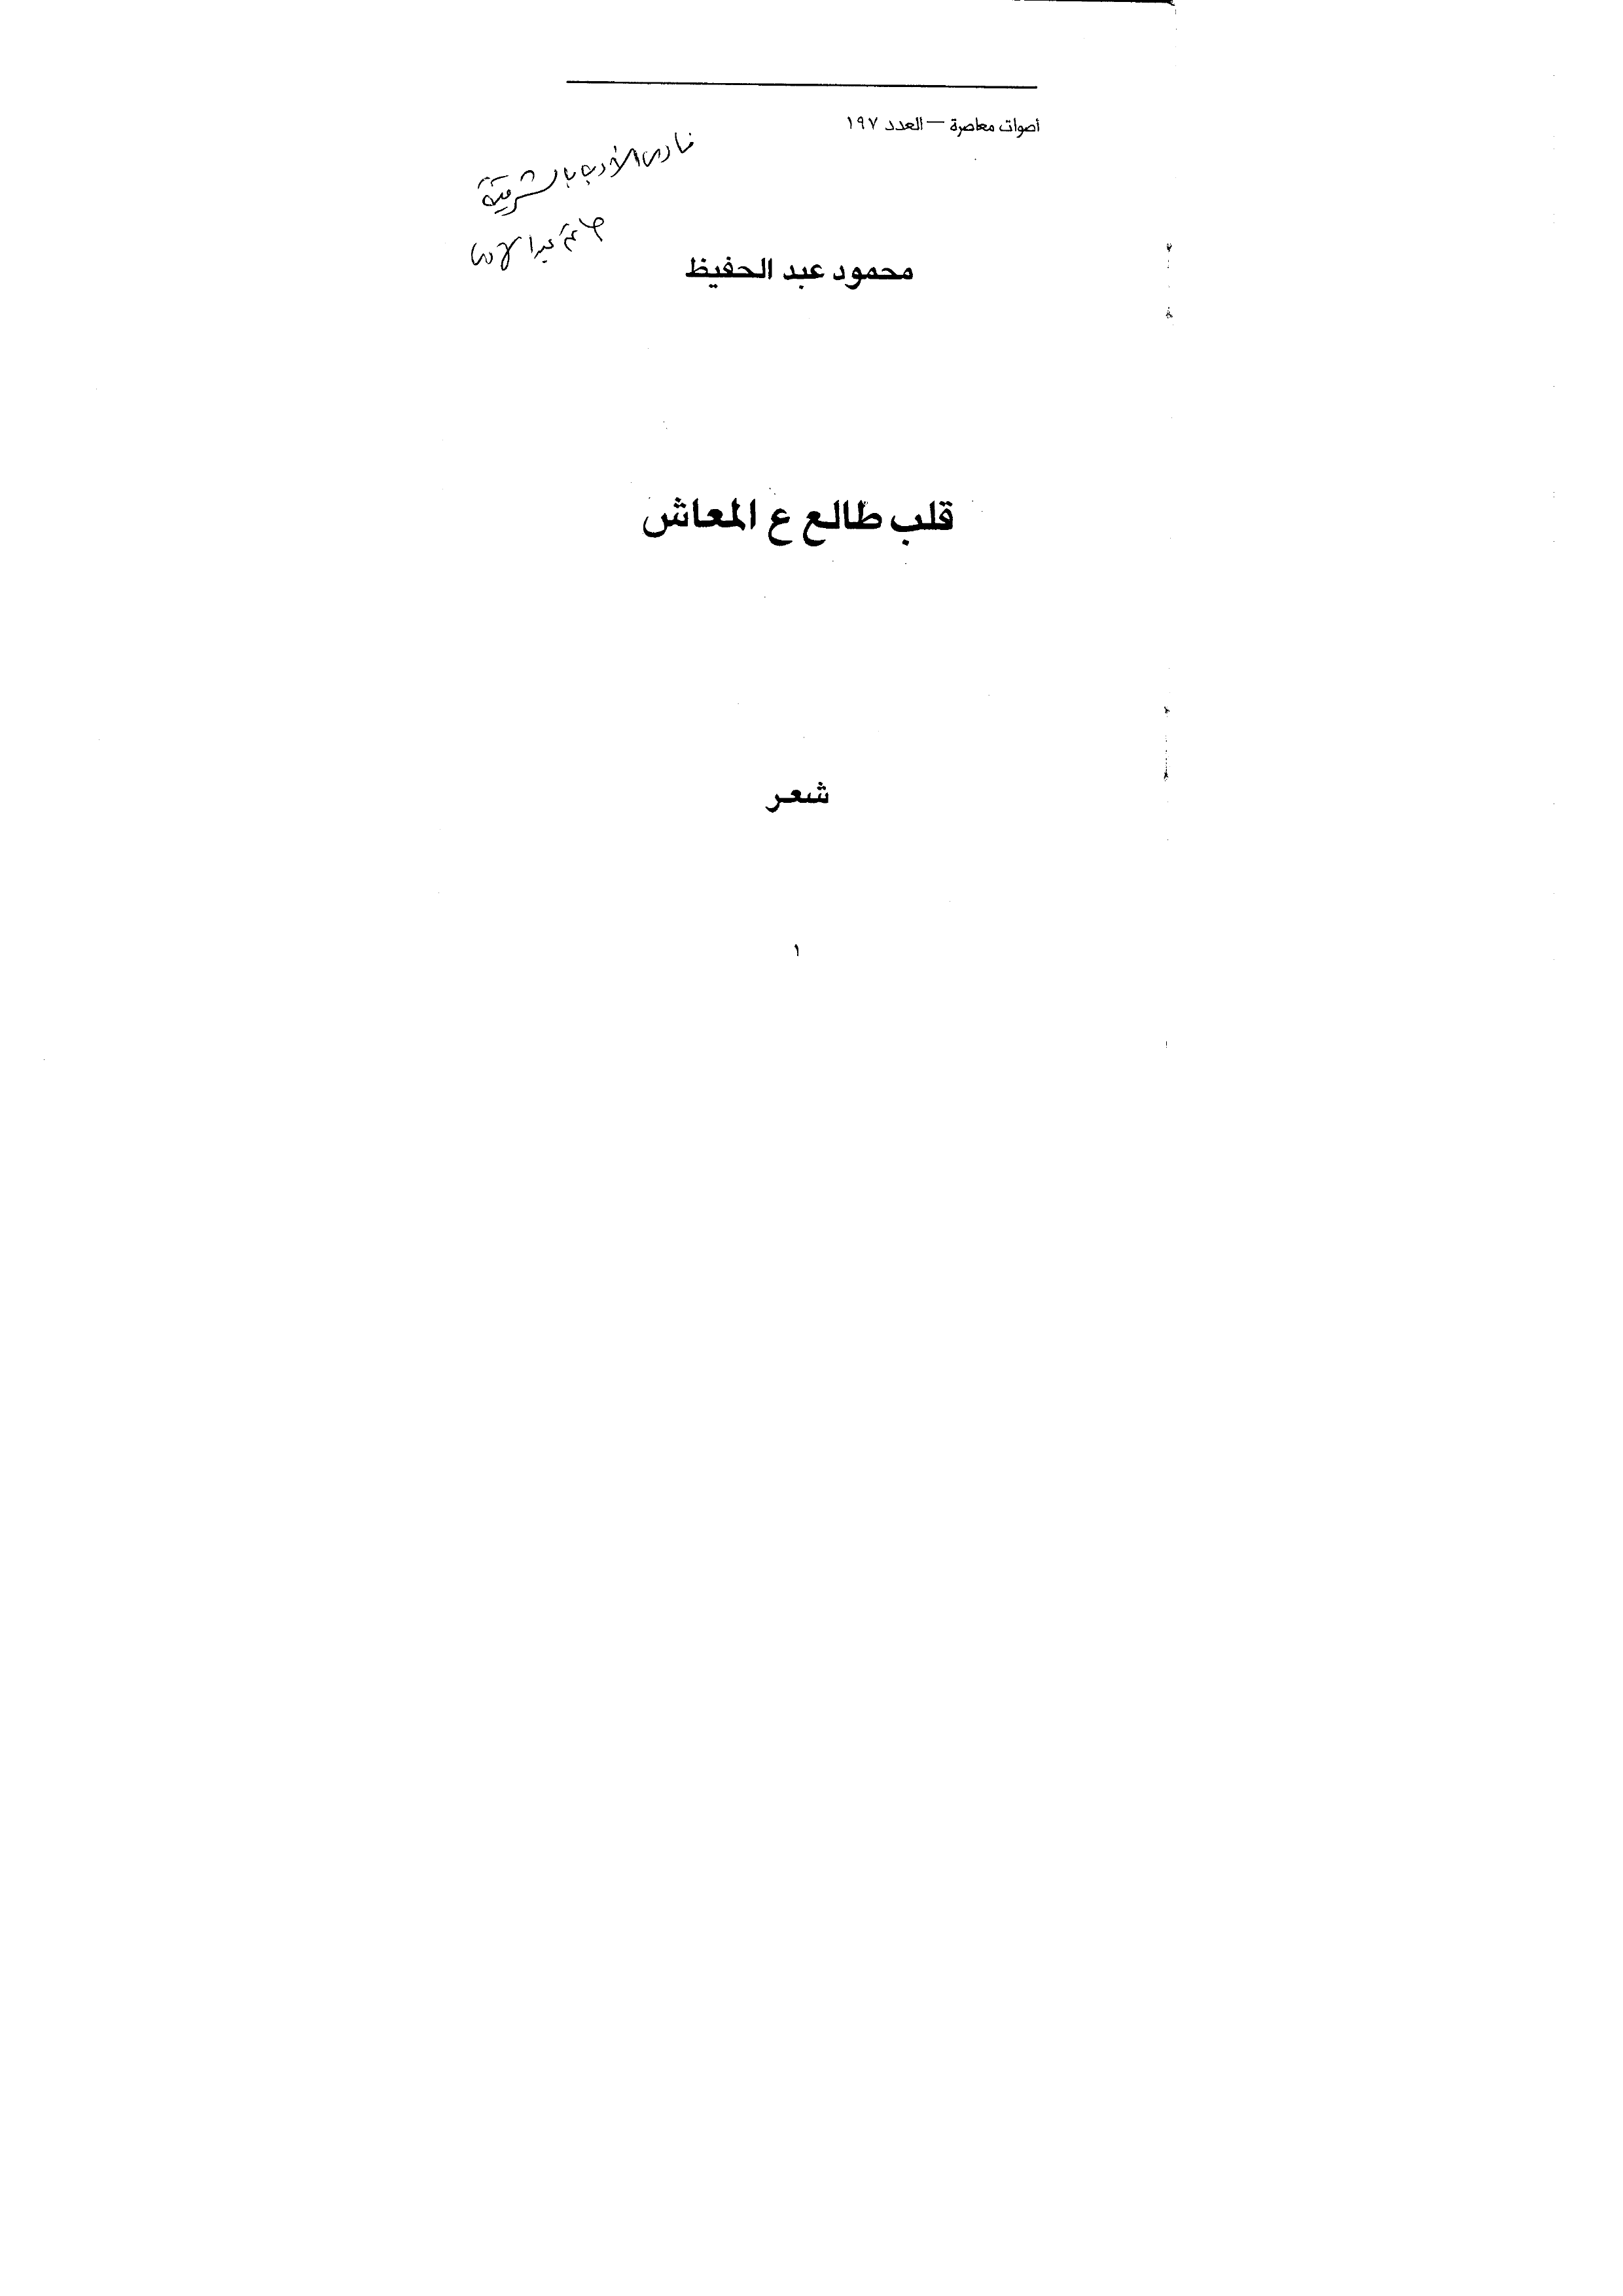 أصوات معاصرة – العدد ١٩٧
نادى الأدب بالشرقية
محمود عبد الحفيظ
قلب طالع ع المعاش
شعر
١